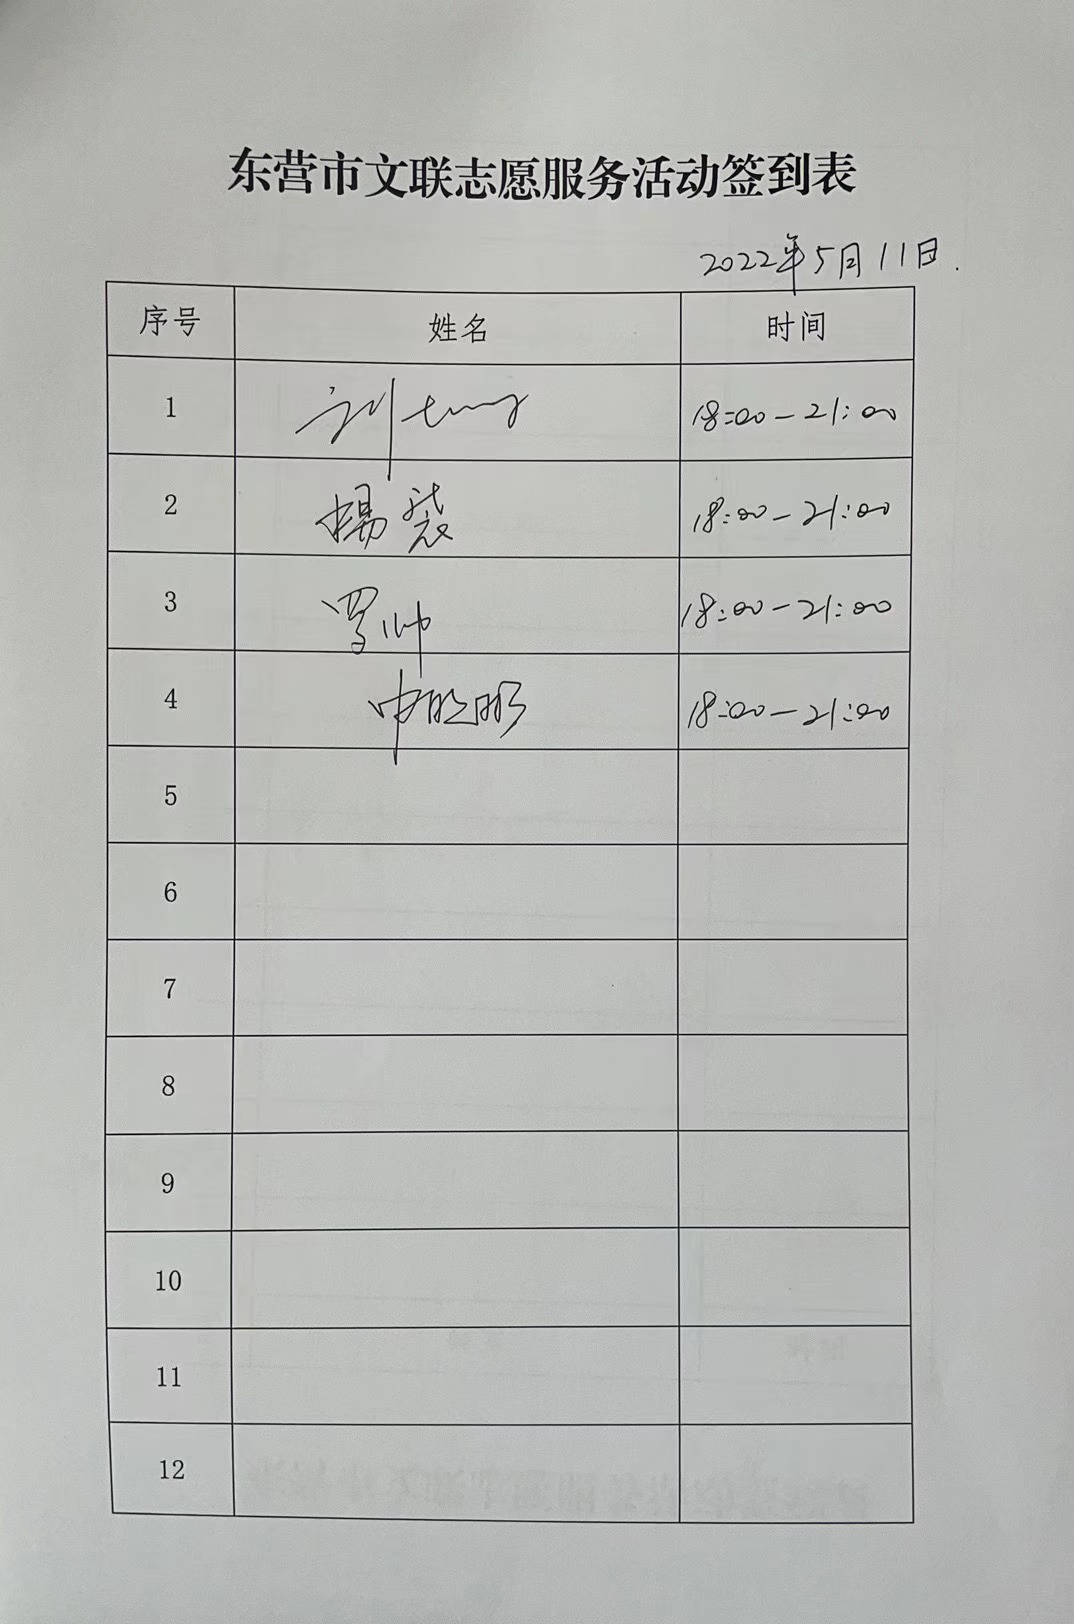 东营市文联志愿服务活动签到表
2022年5月11日.
序号 姓名 时间
1 刘 18:00-21:00
2 杨裴 18:00-21:00
3 罗帅 18:00-21:00
4 申晓彤 18:00-21:00
5
6
7
8
9
10
11
12